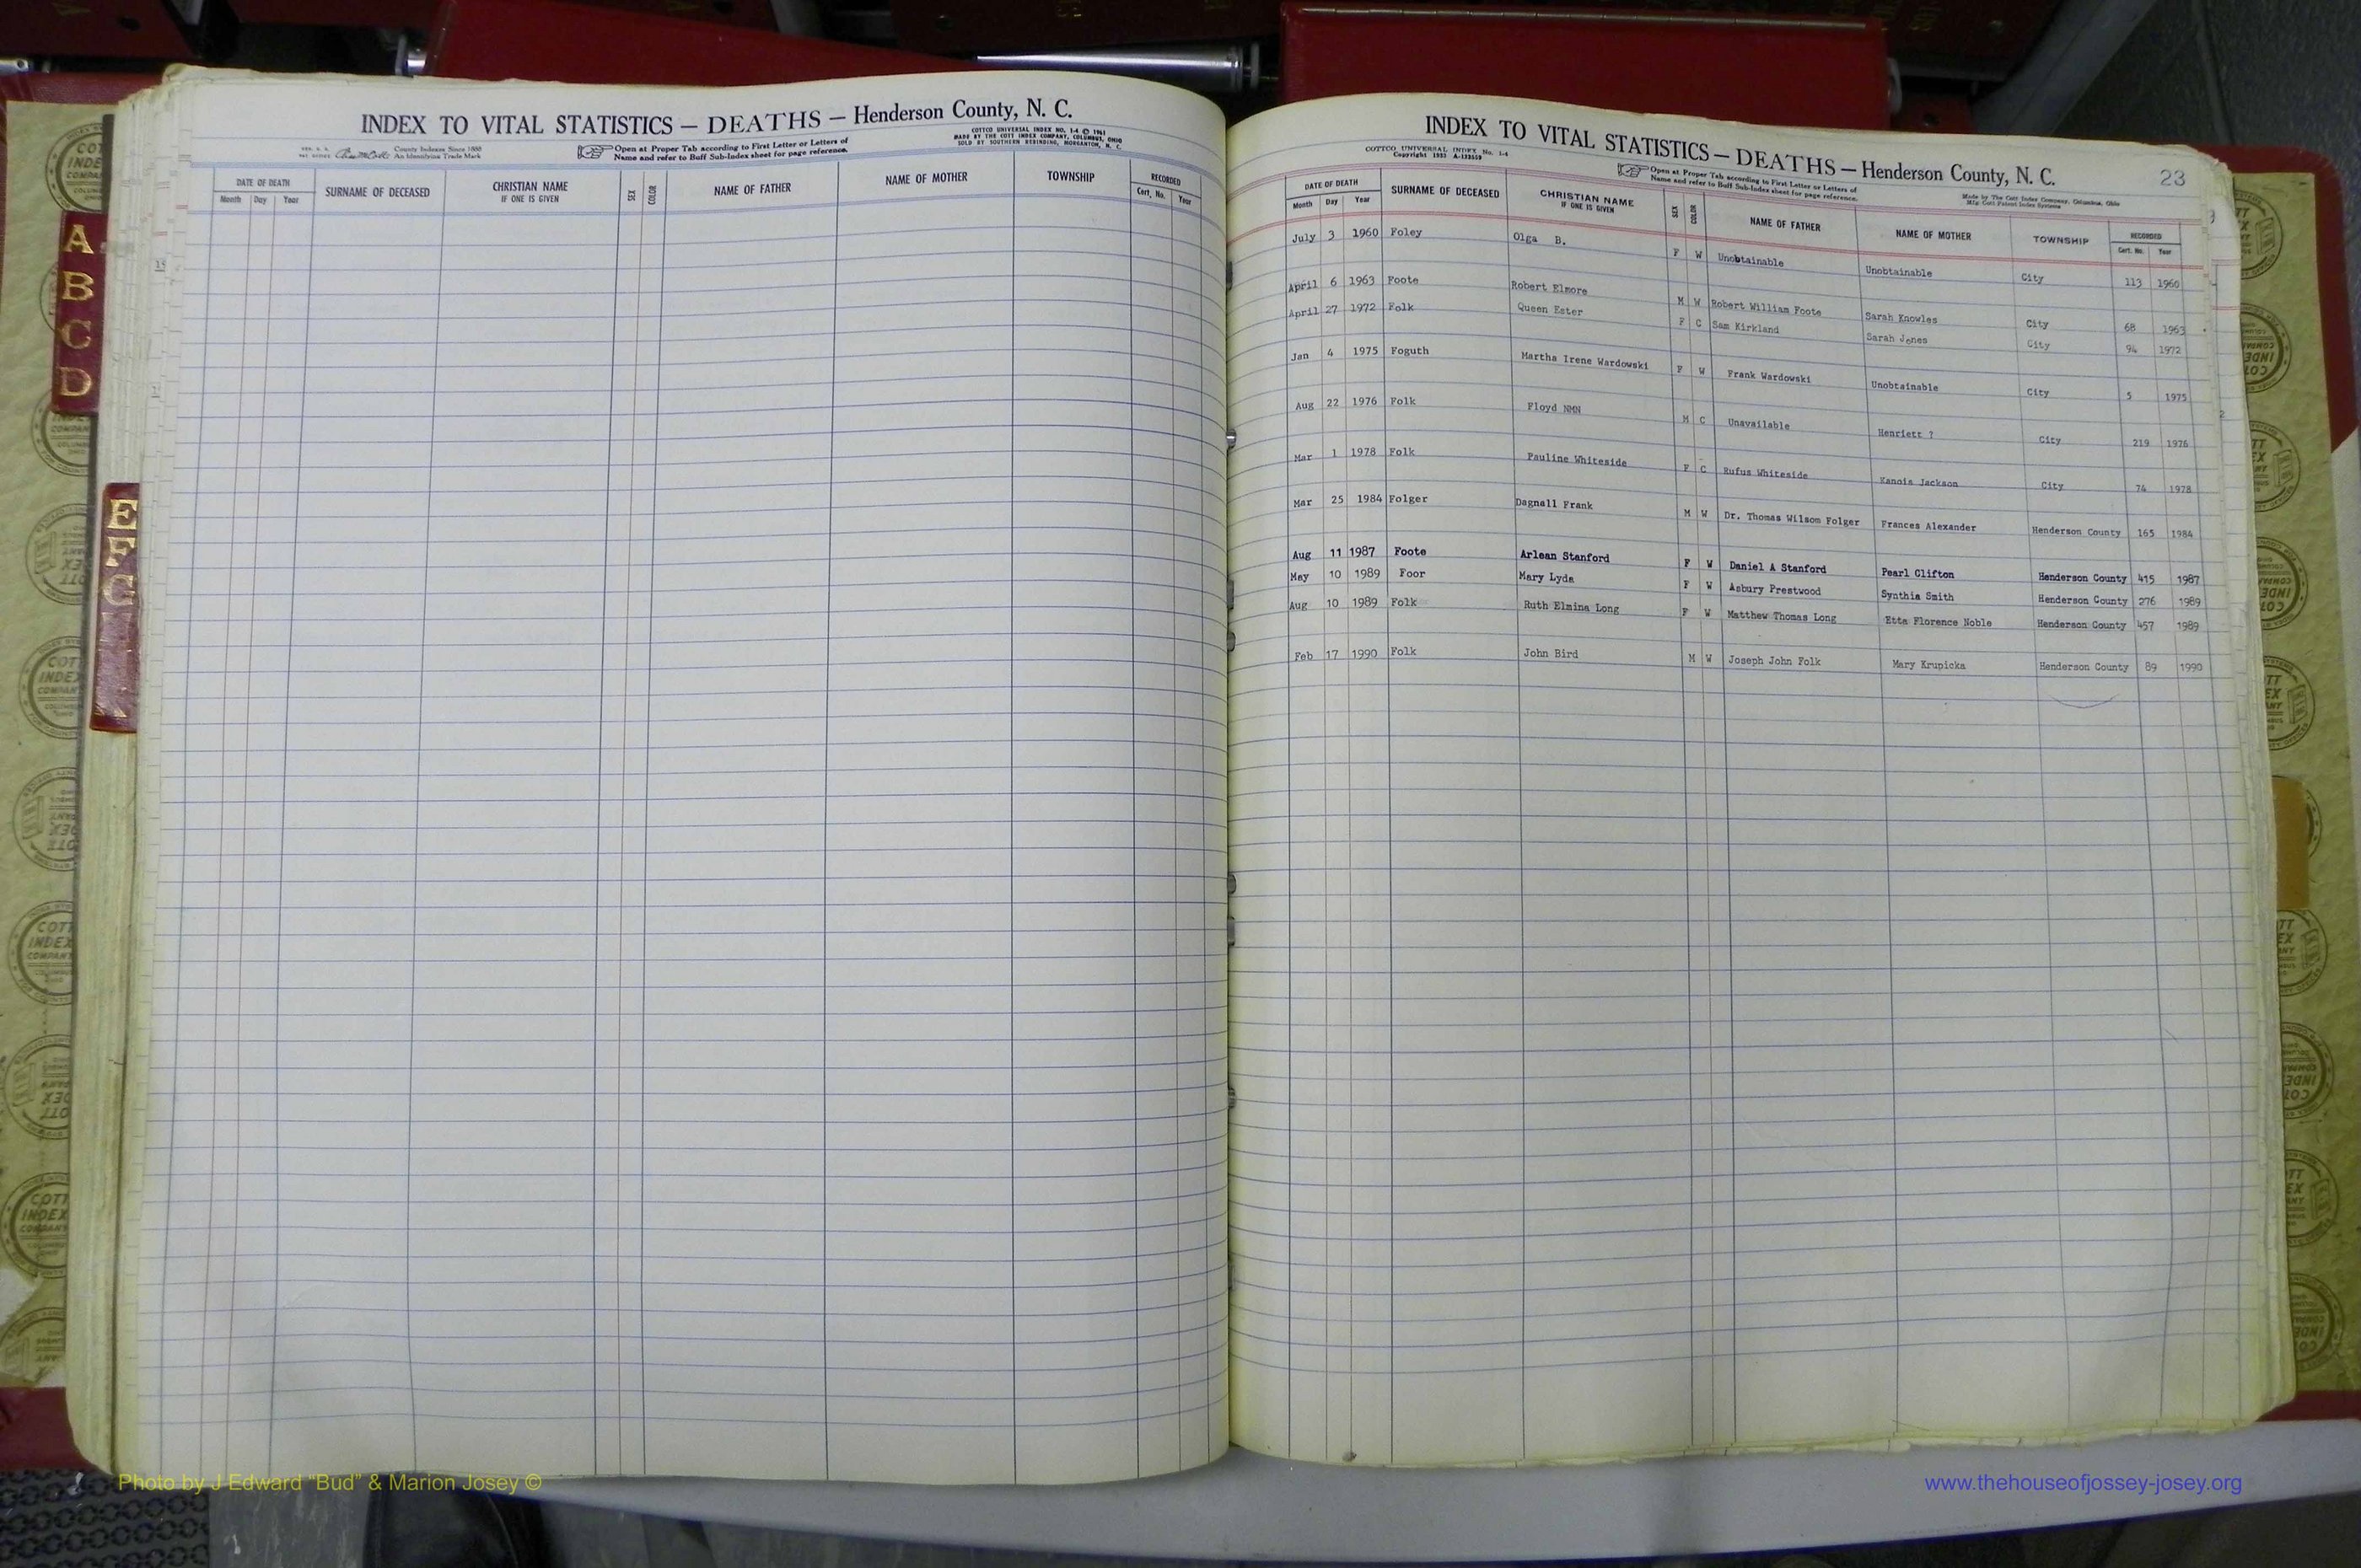 INDEX TO VITAL STATISTICS — DEATHS — Henderson County, N. C.
County Indexes Since 1888
An Identifying Trade Mark
Open at Proper Tab according to First Letter or Letters of
Name and refer to Buff Sub-Index sheet for page reference.
COTTCO UNIVERSAL INDEX NO. 1-4 © 1961
MADE BY THE COTT INDEX COMPANY, COLUMBUS, OHIO
SOLD BY SOUTHERN REBINDING, MORGANTON, N. C.
DATE OF DEATH SURNAME OF DECEASED CHRISTIAN NAME IF ONE IS GIVEN SEX COLOR NAME OF FATHER NAME OF MOTHER TOWNSHIP RECORDED
Month Day Year Cert. No. Year
A
B
C
D
E
F
G
INDEX TO VITAL STATISTICS — DEATHS — Henderson County, N. C. 23
COTTCO UNIVERSAL INDEX No. 1-4
Copyright 1933
Open at Proper Tab according to First Letter or Letters of
Name and refer to Buff Sub-Index sheet for page reference.
Made by The Cott Index Company, Columbus, Ohio
DATE OF DEATH SURNAME OF DECEASED CHRISTIAN NAME IF ONE IS GIVEN SEX COLOR NAME OF FATHER NAME OF MOTHER TOWNSHIP RECORDED
Month Day Year Cert. No. Year
July 3 1960 Foley Olga B. F W Unobtainable Unobtainable City 113 1960
April 6 1963 Foote Robert Elmore M W Robert William Foote Sarah Knowles City 68 1963
April 27 1972 Folk Queen Ester F C Sam Kirkland Sarah Jones City 94 1972
Jan 4 1975 Foguth Martha Irene Wardowski F W Frank Wardowski Unobtainable City 5 1975
Aug 22 1976 Folk Floyd NMN M C Unavailable Henriett ? City 219 1976
Mar 1 1978 Folk Pauline Whiteside F C Rufus Whiteside Kanois Jackson City 74 1978
Mar 25 1984 Folger Dagnall Frank M W Dr. Thomas Wilsom Folger Frances Alexander Henderson County 165 1984
Aug 11 1987 Foote Arlean Stanford F W Daniel A Stanford Pearl Clifton Henderson County 415 1987
May 10 1989 Foor Mary Lyda F W Asbury Prestwood Synthia Smith Henderson County 276 1989
Aug 10 1989 Folk Ruth Elmina Long F W Matthew Thomas Long Etta Florence Noble Henderson County 457 1989
Feb 17 1990 Folk John Bird M W Joseph John Folk Mary Krupicka Henderson County 89 1990
Photo by J Edward "Bud" & Marion Josey ©
www.thehouseofjossey-josey.org